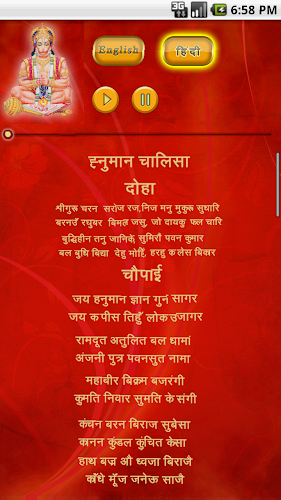 3G
6:58 PM
English
हिंदी
ह्नुमान चालिसा
दोहा
श्रीगुरू चरन सरोज रज,निज मनु मुकुरू सुधारि
बरनउँ रघुबर बिमल जसु, जो दायकु फल चारि
बुद्धिहीन तनु जानिके, सुमिरौं पवन कुमार
बल बुधि बिद्या देहु मोहिं, हरहु कलेस बिकार
चौपाई
जय हनुमान ज्ञान गुन सागर
जय कपीस तिहुँ लोक उजागर
रामदूत अतुलित बल धामां
अंजनी पुत्र पवनसुत नामा
महाबीर बिक्रम बजरंगी
कुमति निवार सुमति के संगी
कंचन बरन बिराज सुबेसा
कानन कुंडल कुंचित केसा
हाथ बज्र औ ध्वजा बिराजै
काँधे मूँज जनेऊ साजै